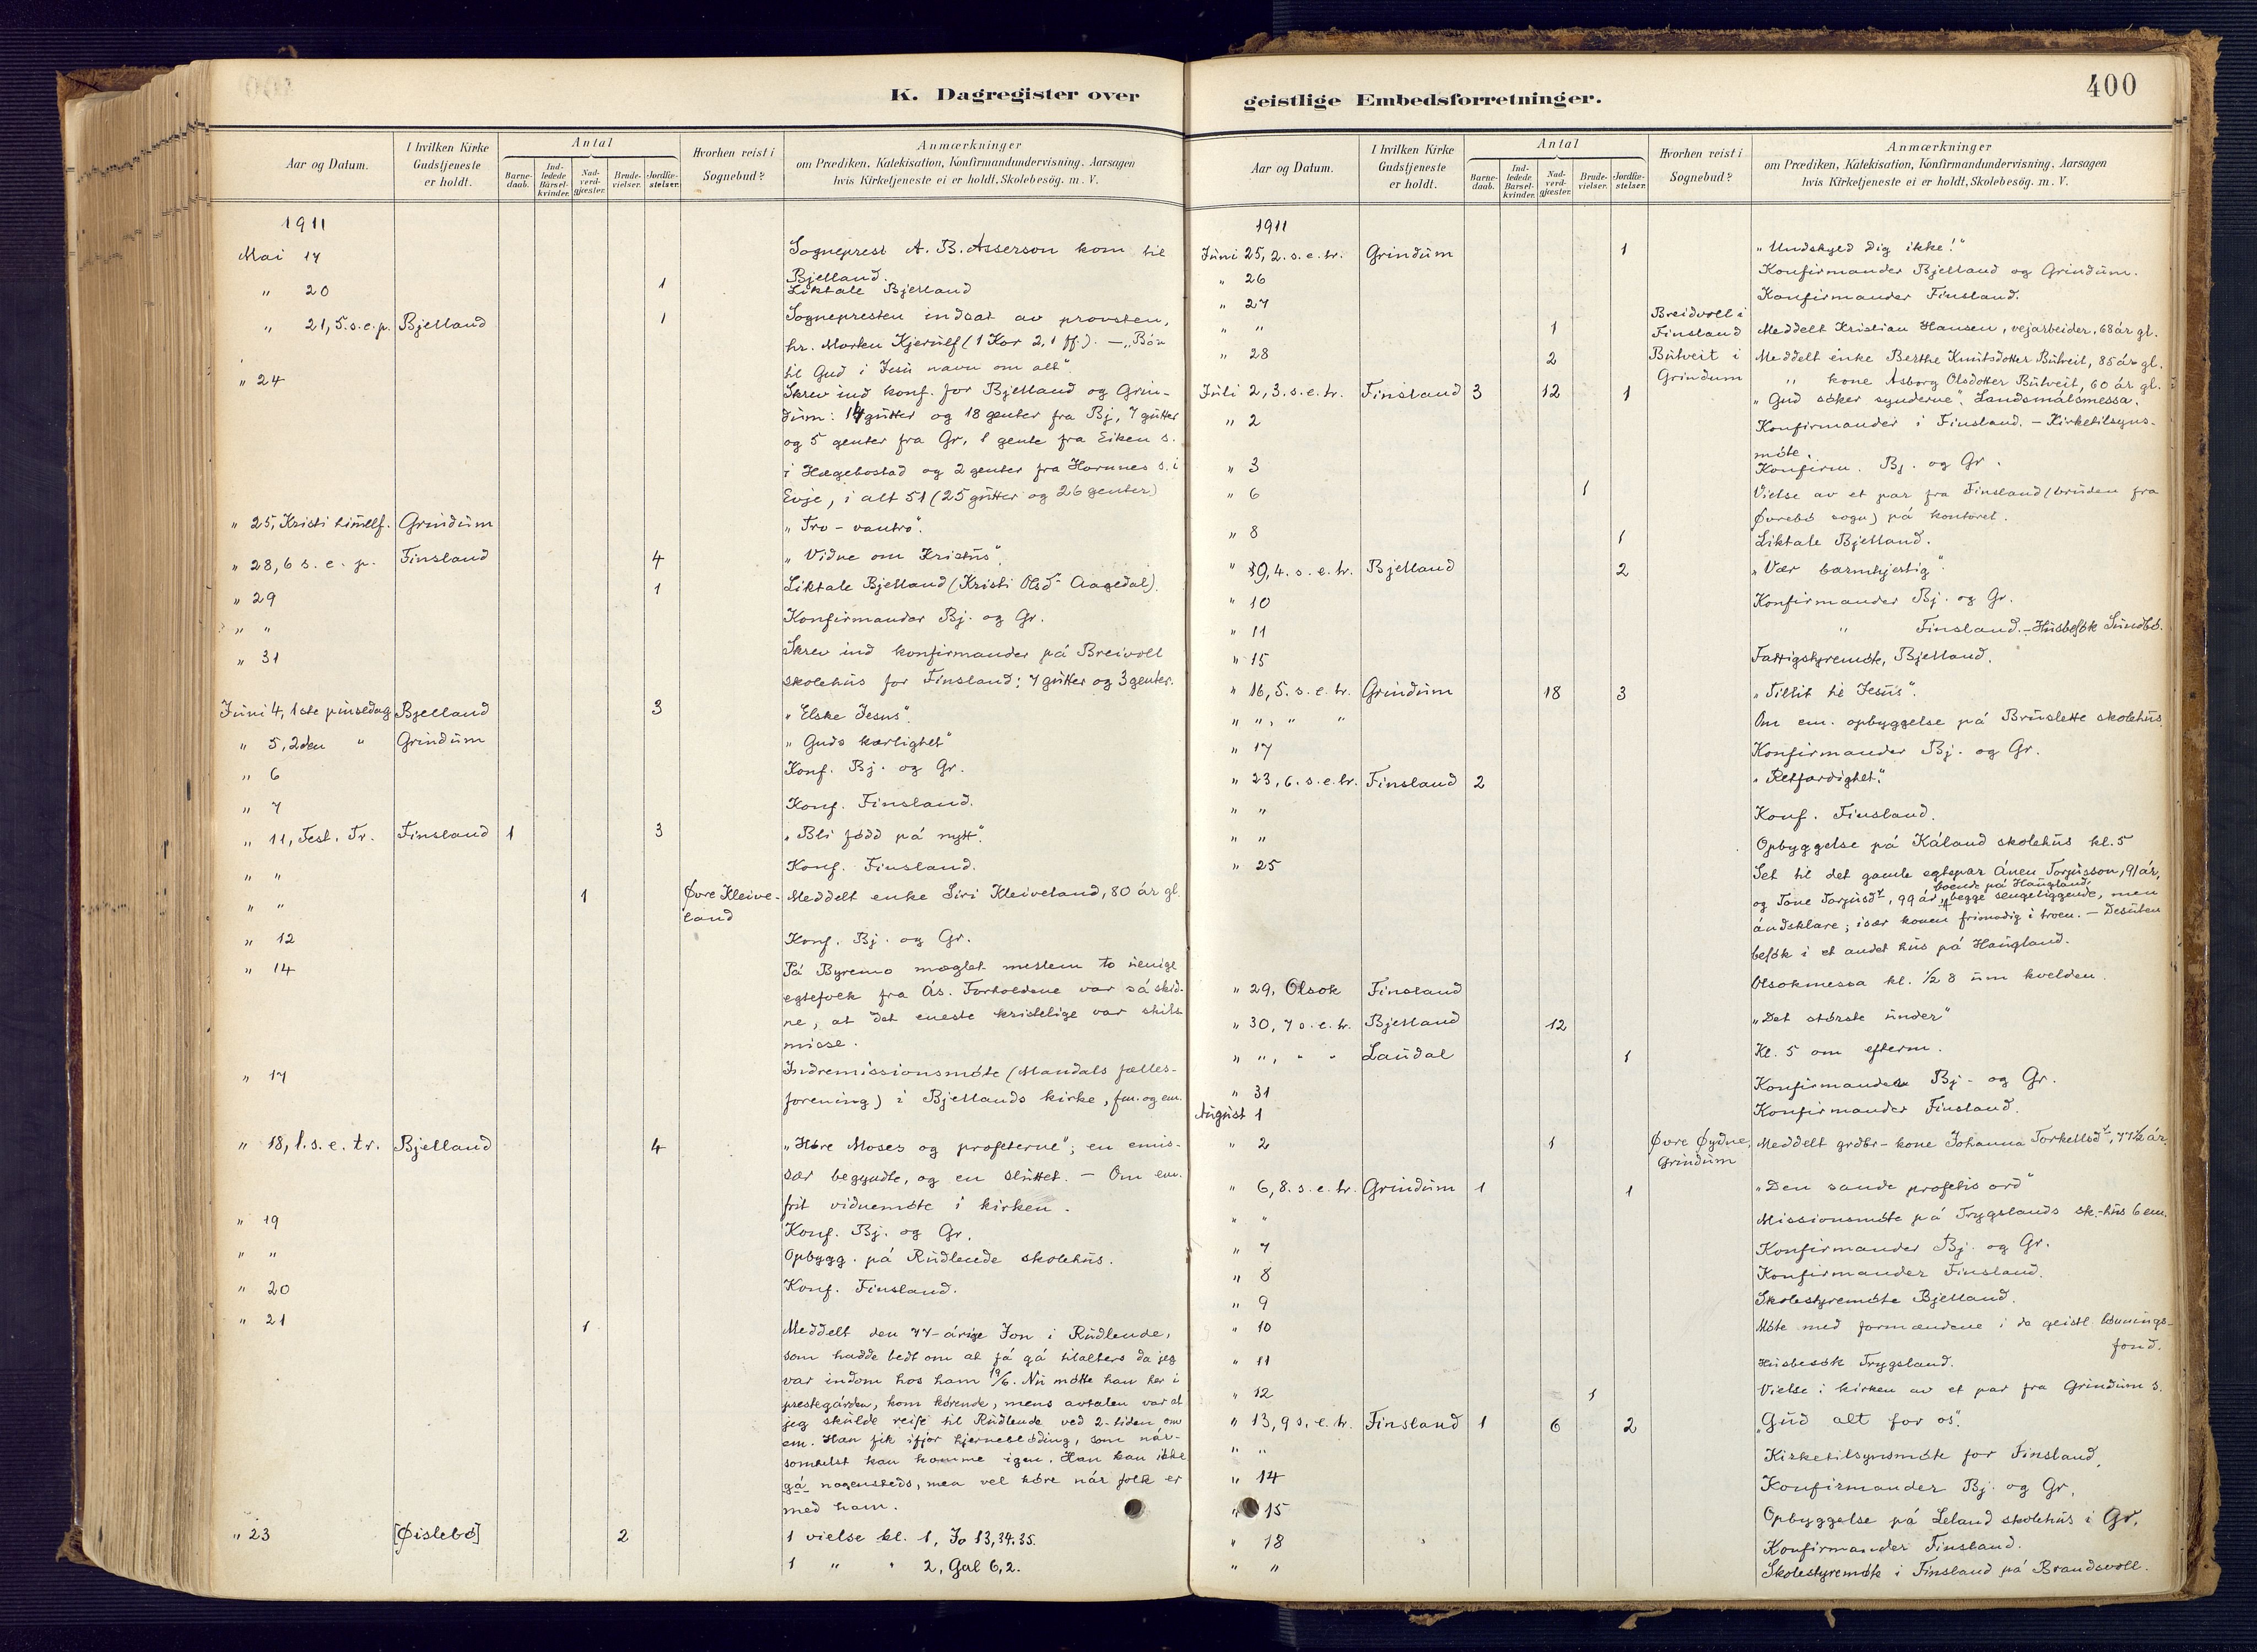 K. Dagregister over
Aar og Datum.
I hvilken Kirke Gudstjeneste er holdt.
Antal
Barne-daab.
Ind-ledede Barsel-kvinder.
Nad-verd-gjæster.
Brude-vielser.
Jordfæ-stelser.
Hvorhen reist i Sognebud?
Anmærkninger
om Prædiken, Katekisation, Konfirmandundervisning, Aarsagen
hvis Kirketjeneste ei er holdt, Skolebesög. m. V.
1911
Mai 17 Sogneprest A. B. Asserson kom til
Bjelland.
" 20 1 Liktale Bjelland
" 21, 5. s. e. p. Bjelland 1 Sognepresten indsat av provsten,
hr. Morten Kjerulf (1 Kor 2,1 ff). – „Bön
til Gud i Jesu navn om alt".
" 24 Skrev ind konf. for Bjelland og Grin-
dum: 14 gutter og 18 genter fra Bj, 7 gutter
og 5 genter fra Gr, 1 gente fra Eiken s.
i Hægebostad og 2 genter fra Hornnes s. i
Evje, i alt 51 (25 gutter og 26 genter)
" 25, Kristi himelf. Grindum „Tro – vantro".
" 28, 6 s. e. p. Finsland 4 „Vidne om Kristus".
" 29 1 Liktale Bjelland (Kristi Olsdr Aagedal).
" " Konfirmander Bj. og Gr.
" 31 Skrev ind konfirmander på Breivoll
skolehus for Finsland: 7 gutter og 3 genter.
Juni 4, 1ste pinsedag Bjelland 3 „Elske Jesus".
" 5, 2den " Grindum „Guds kærlighet"
" 6 Konf. Bj. og Gr.
" 7 Konf. Finsland.
" 11, Fest. Tr. Finsland 1 3 „Bli fødd på nytt".
" " Konf. Finsland.
" " 1 Øvre Kleive- Meddelt enke Siri Kleiveland, 80 år gl.
land
" 12 Konf. Bj. og Gr.
" 14 På Byremo mæglet mellem to uenige
egtefolk fra Ås. Forholdene var så skid-
ne, at det eneste kristelige var skils-
misse.
" 17 Indremissionsmöte (Mandals fælles-
forening) i Bjellands kirke, fm. og em.
" 18, 1. s. e. tr. Bjelland 4 „Höre Moses og profeterne"; en emis-
sær begyndte, og en sluttet. – Om em.
frit vidnemöte i kirken.
" 19 Konf. Bj. og Gr.
" " Opbygg. på Rudlende skolehus.
" 20 Konf. Finsland.
" 21 1 Meddelt den 77-årige Jon i Rudlende,
som hadde bedt om at få gå tilalters da jeg
var indom hos ham 19/6. Nu mötte han her i
prestegården, kom körende, mens avtalen var at
jeg skulde reise til Rudlende ved 2-tiden om
em. Han fik ifjor hjerneblödning, som når-
somhelst kan komme igen. Han kan ikke
gå nogensteds, men vel köre når folk er
med ham.
" 23 [Øislebö] 2 1 vielse kl. 1, Jo 13,34.35.
1 " " 2, Gal 6,2.
geistlige Embedsforretninger.
400
Aar og Datum.
I hvilken Kirke Gudstjeneste er holdt.
Antal
Barne-daab.
Ind-ledede Barsel-kvinder.
Nad-verd-gjæster.
Brude-vielser.
Jordfæ-stelser.
Hvorhen reist i Sognebud?
Anmærkninger
om Prædiken, Katekisation, Konfirmandundervisning, Aarsagen
hvis Kirketjeneste ei er holdt, Skolebesög. m. V.
1911
Juni 25, 2. s. e. tr. Grindum 1 „Undskyld dig ikke!"
" 26 Konfirmander Bjelland og Grindum.
" 27 Konfirmander Finsland.
" " 1 Breidvoll i Finsland Meddelt Kristian Hansen, vejarbeider, 68 år gl.
" 28 2 Butveit i Grindum Meddelt enke Berthe Knutsdotter Butveit, 85 år gl.
" kone Asborg Olsdotter Butveit, 60 år gl.
Juli 2, 3. s. e. tr. Finsland 3 12 1 „Gud söker synderne". Landsmålsmessa.
" 2 Konfirmander i Finsland. – Kirketilsyns-
möte.
" 3 Konfirm. Bj. og Gr.
" 6 1 Vielse av et par fra Finsland (bruden fra
Øvrebö sogn) på kontoret.
" 8 1 Liktale Bjelland.
" 9, 4. s. e. tr. Bjelland 2 „Vær barmhjertig".
" 10 Konfirmander Bj. og Gr.
" 11 " Finsland. – Husbesök Sundbö.
" 15 Fattigstyremöte, Bjelland.
" 16, 5. s. e. tr. Grindum 18 3 „Tillit til Jesus".
" ", " " Om em. opbyggelse på Bruslette skolehus.
" 17 Konfirmander Bj. og Gr.
" 23, 6. s. e. tr. Finsland 2 „Retfærdighet".
" " Konf. Finsland.
" " Opbyggelse på Kåland skolehus kl. 5
" 25 Set til det gamle egtepar Ånen Torjusson, 91 år,
boende på Haugland,
og Tone Torjusdr, 99 år, begge sengeliggende, men
åndsklare; især konen frimodig i troen. – Desuten
besök i et andet hus på Haugland.
" 29, Olsok Finsland Olsokmessa kl. 1/2 8 um kvelden.
" 30, 7 s. e. tr. Bjelland 12 „Det störste under"
" ", " " Laudal 1 Kl. 5 om efterm.
" 31 Konfirmander Bj. og Gr.
August 1 Konfirmander Finsland.
" 2 1 Øvre Øydne, Grindum Meddelt grdbr-kone Johanna Torkellsdr, 77 1/2 år.
" 6, 8. s. e. tr. Grindum 1 1 „Den sande profetis ord"
" " Missionsmöte på Trygslands sk.-hus 6 em.
" 7 Konfirmander Bj. og Gr.
" 8 Konfirmander Finsland.
" 9 Skolestyremöte Bjelland.
" 10 Möte med formændene i de geistl. lönnings-
fond.
" 11 Husbesök Trygsland.
" 12 1 Vielse i kirken av et par fra Grindum s.
" 13, 9 s. e. tr. Finsland 1 6 2 „Gud alt for os".
" " Kirketilsynsmöte for Finsland.
" 14 Konfirmander Bj. og Gr.
" 15 Opbyggelse på Leland skolehus i Gr.
" 18 Konfirmander Finsland.
" " Skolestyremöte i Finsland på Brandsvoll.